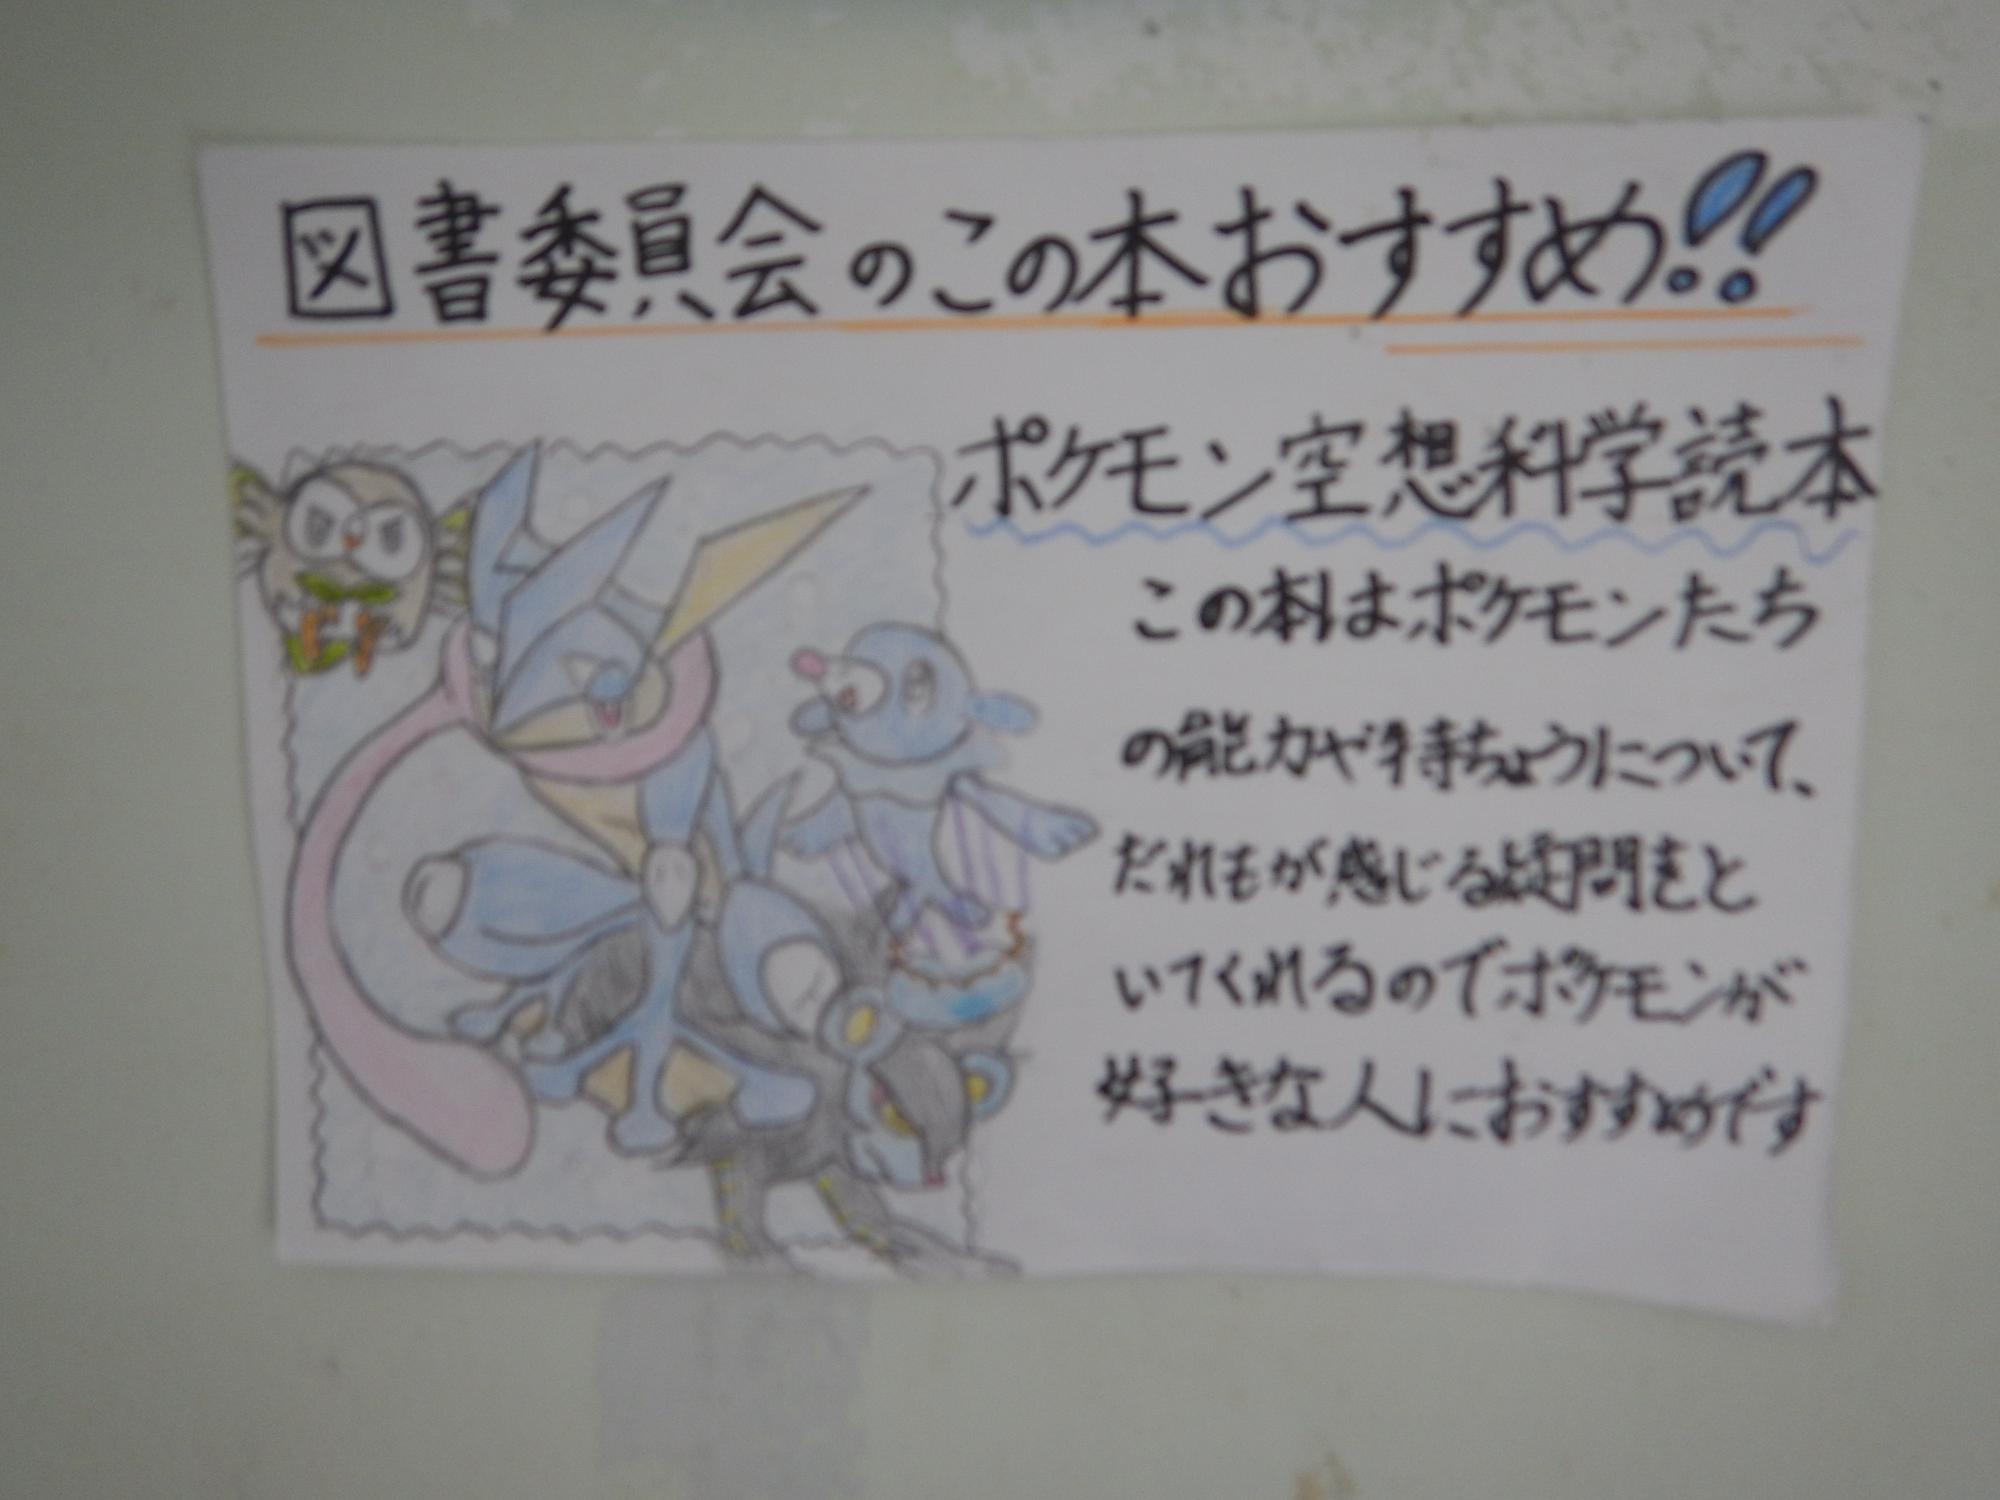 図書委員会のこの本おすすめ!!
ポケモン空想科学読本
この本はポケモンたち
の能力や特ちょうについて、
だれもが感じる疑問をと
いてくれるのでポケモンが
好きな人におすすめです